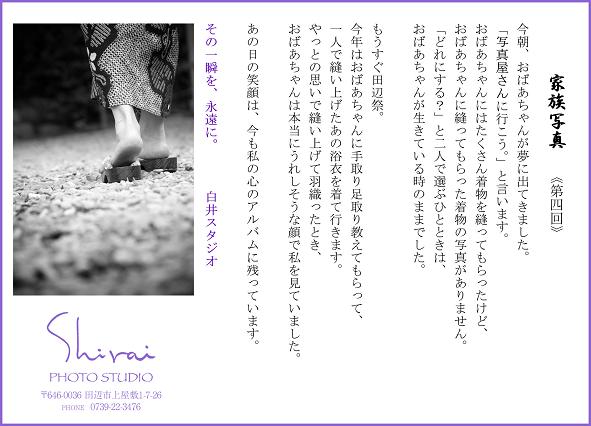 家族写真 《第四回》
今朝、おばあちゃんが夢に出てきました。
「写真屋さんに行こう。」と言います。
おばあちゃんにはたくさん着物を縫ってもらったけど、
おばあちゃんに縫ってもらった着物の写真がありません。
「どれにする?」と二人で選ぶひとときは、
おばあちゃんが生きている時のままでした。
もうすぐ田辺祭。
今年はおばあちゃんに手取り足取り教えてもらって、
一人で縫い上げたあの浴衣を着て行きます。
やっとの思いで縫い上げて羽織ったとき、
おばあちゃんは本当にうれしそうな顔で私を見ていました。
あの日の笑顔は、今も私の心のアルバムに残っています。
その一瞬を、永遠に。 白井スタジオ
Shirai
PHOTO STUDIO
〒646-0036 田辺市上屋敷1-7-26
PHONE 0739-22-3476